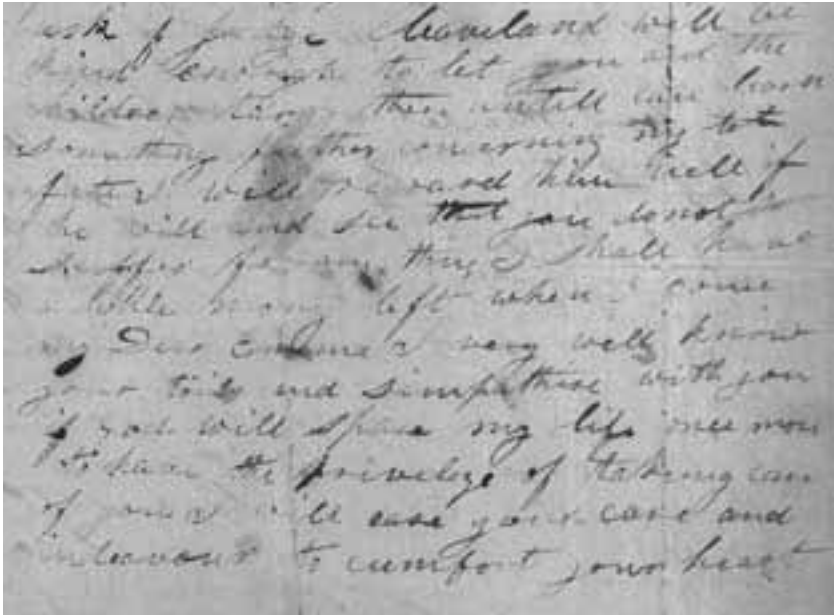 ask if judge Cleaveland will be
kind enough to let you and the
children stay there untill you hear
something further concerning my
fate I will reward him well if
he will and see that you do not
suffer for any thing I shall have
a little money left when I come
my Dear I very well know
your toils and simpathise with you
if god will spare my life once more
to have the privelige of taking care
of you I will ease your care and
indeavour to cumfort your heart